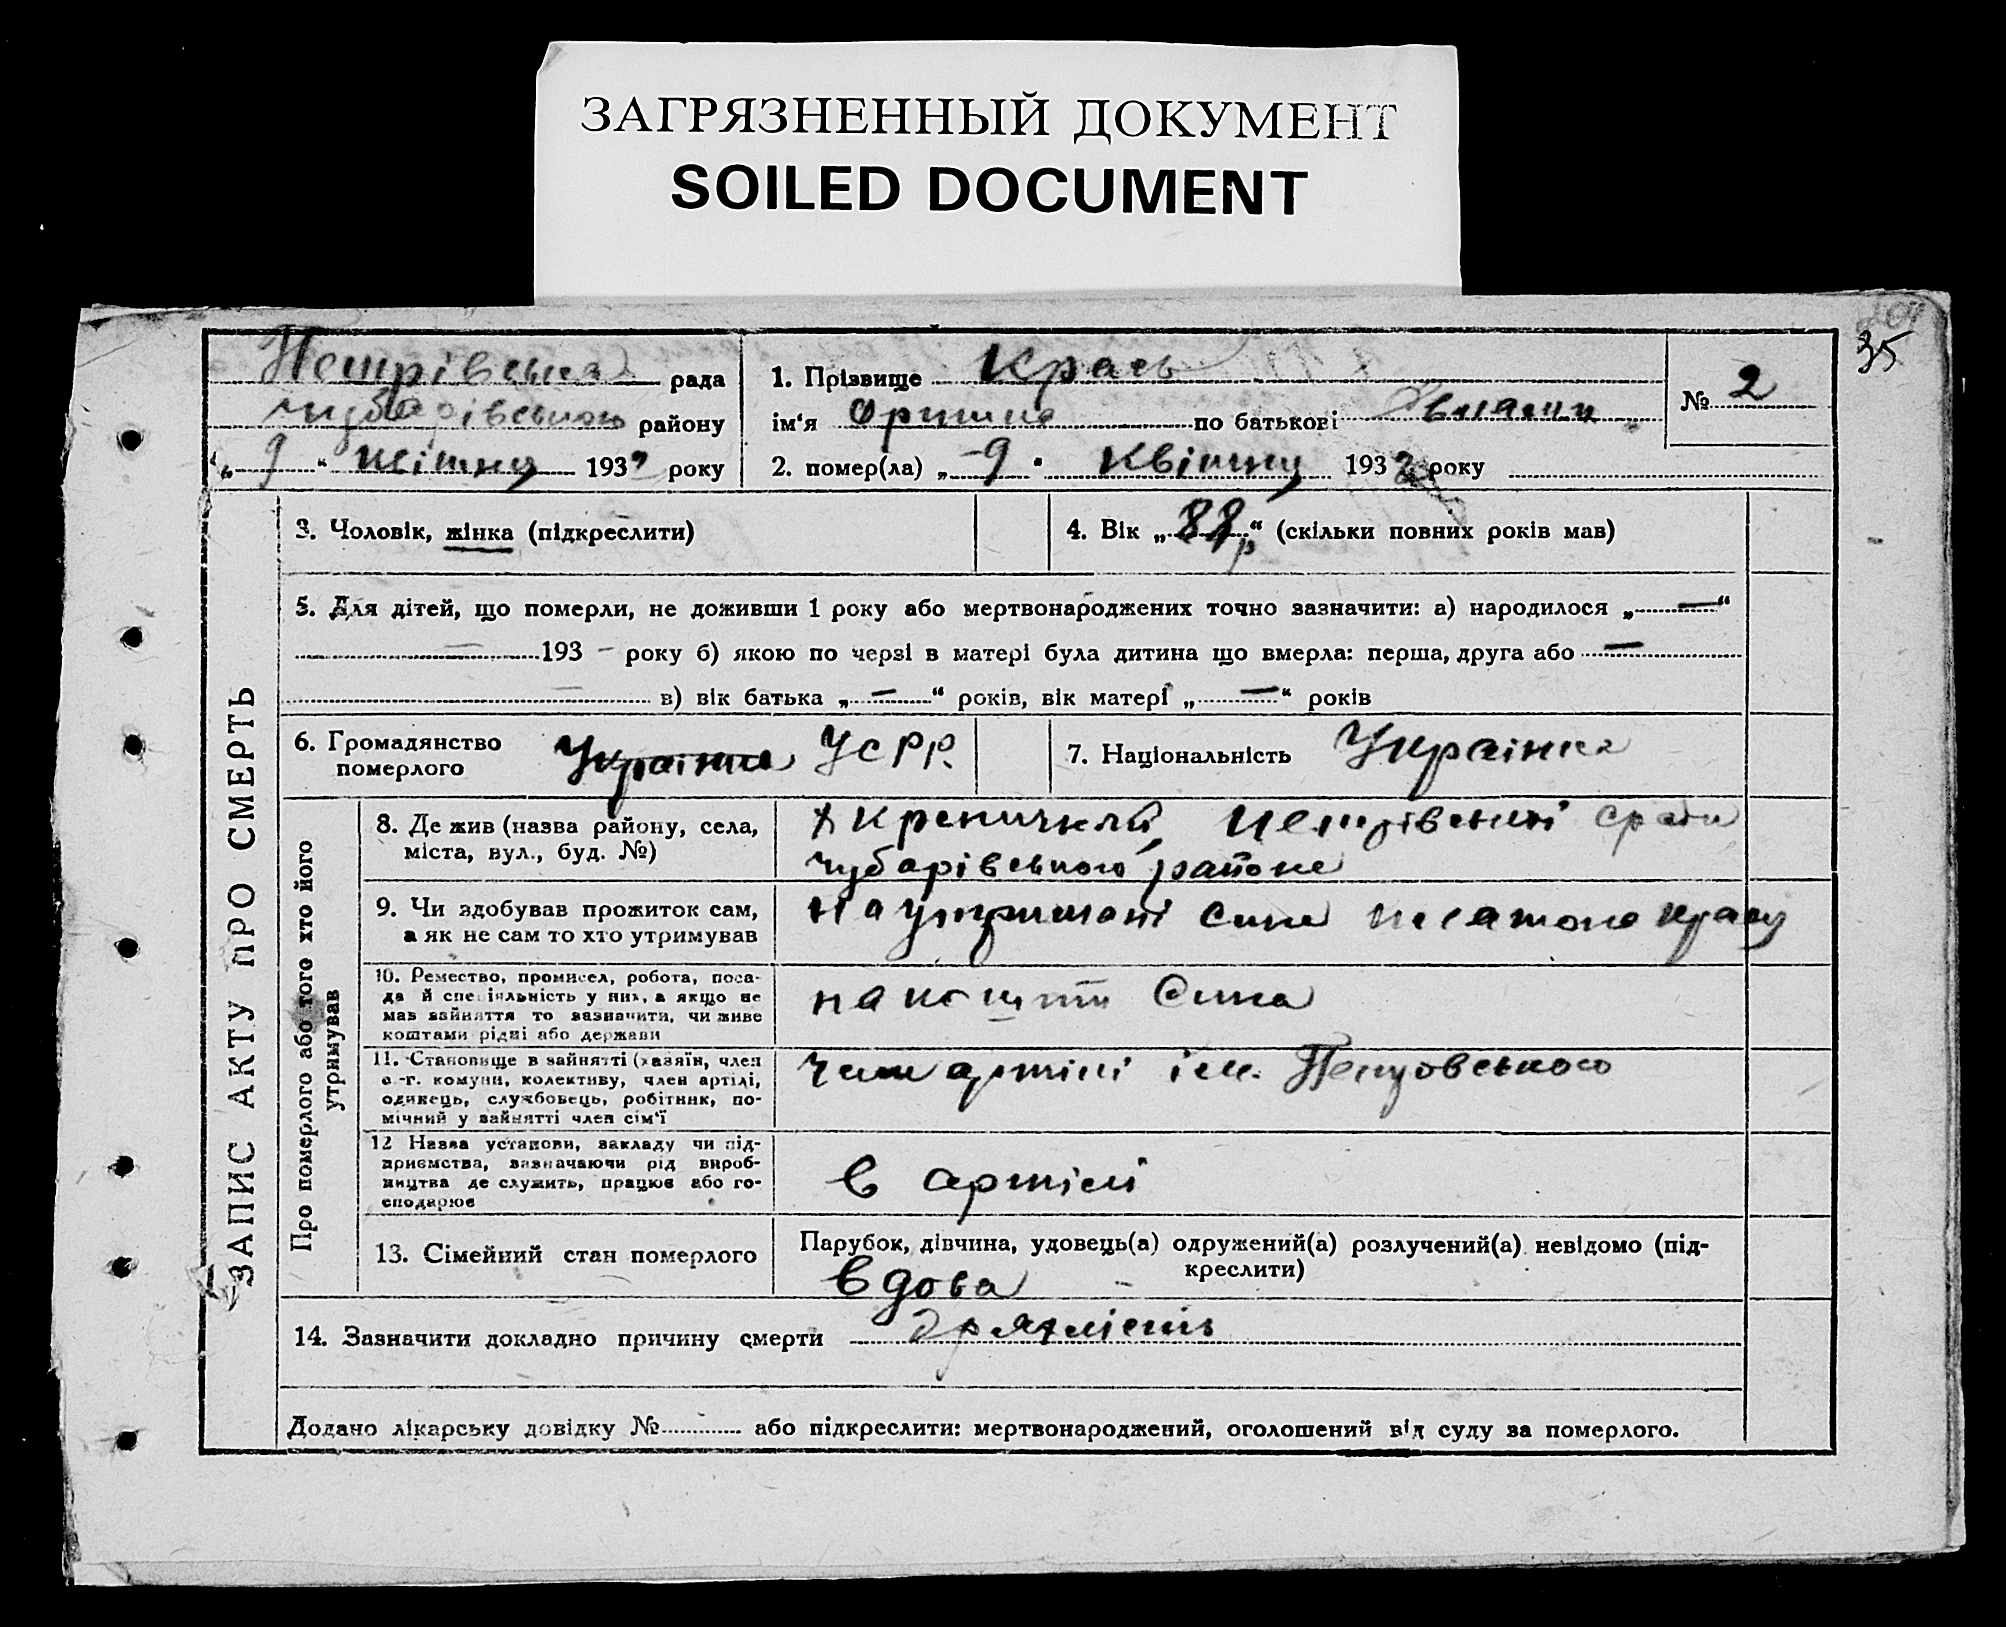 ЗАГРЯЗНЕННЫЙ ДОКУМЕНТ
SOILED DOCUMENT
35
Петрівська рада
Чубарівського району
„ 9 “ квітня 193 року
1. Прізвище Крась
ім'я Оришка по батькові
2. помер(ла) „ 9 " Квітня 193 року
№ 2
ЗАПИС АКТУ ПРО СМЕРТЬ
3. Чоловік, жінка (підкреслити)
4. Вік „ 88 р “ (скільки повних років мав)
5. Для дітей, що померли, не доживши 1 року або мертвонароджених точно зазначити: а) народилося „ — “
— 193 — року б) якою по черзі в матері була дитина що вмерла: перша, друга або —
— в) вік батька „ — “ років, вік матері „ — “ років
6. Громадянство
померлого
Українка УСРР.
7. Національність Українка
Про померлого або того хто його
утримував
8. Де жив (назва району, села,
міста, вул., буд. №)
х Петрівської
Чубарівського района
9. Чи здобував прожиток сам,
а як не сам то хто утримував
на утриманні сина
10. Ремество, промисел, робота, поса-
да й спеціяльність у них, а якщо не
мав зайняття то зазначити, чи живе
коштами рідні або держави
на кошти сина
11. Становище в зайнятті (хазяїн, член
с.-г. комуни, колективу, член артілі,
одинець, службовець, робітник, по-
мічний у зайнятті член сім'ї
Член артілі ім. Петровського
12 Назва установи, закладу чи під-
приємства, зазначаючи рід вироб-
ництва де служить, працює або го-
сподарює
в артілі
13. Сімейний стан померлого
Парубок, дівчина, удовець(а) одружений(а) розлучений(а) невідомо (під-
креслити)
Вдова
14. Зазначити докладно причину смерти дряхлість
Додано лікарську довідку № або підкреслити: мертвонароджений, оголошений від суду за померлого.